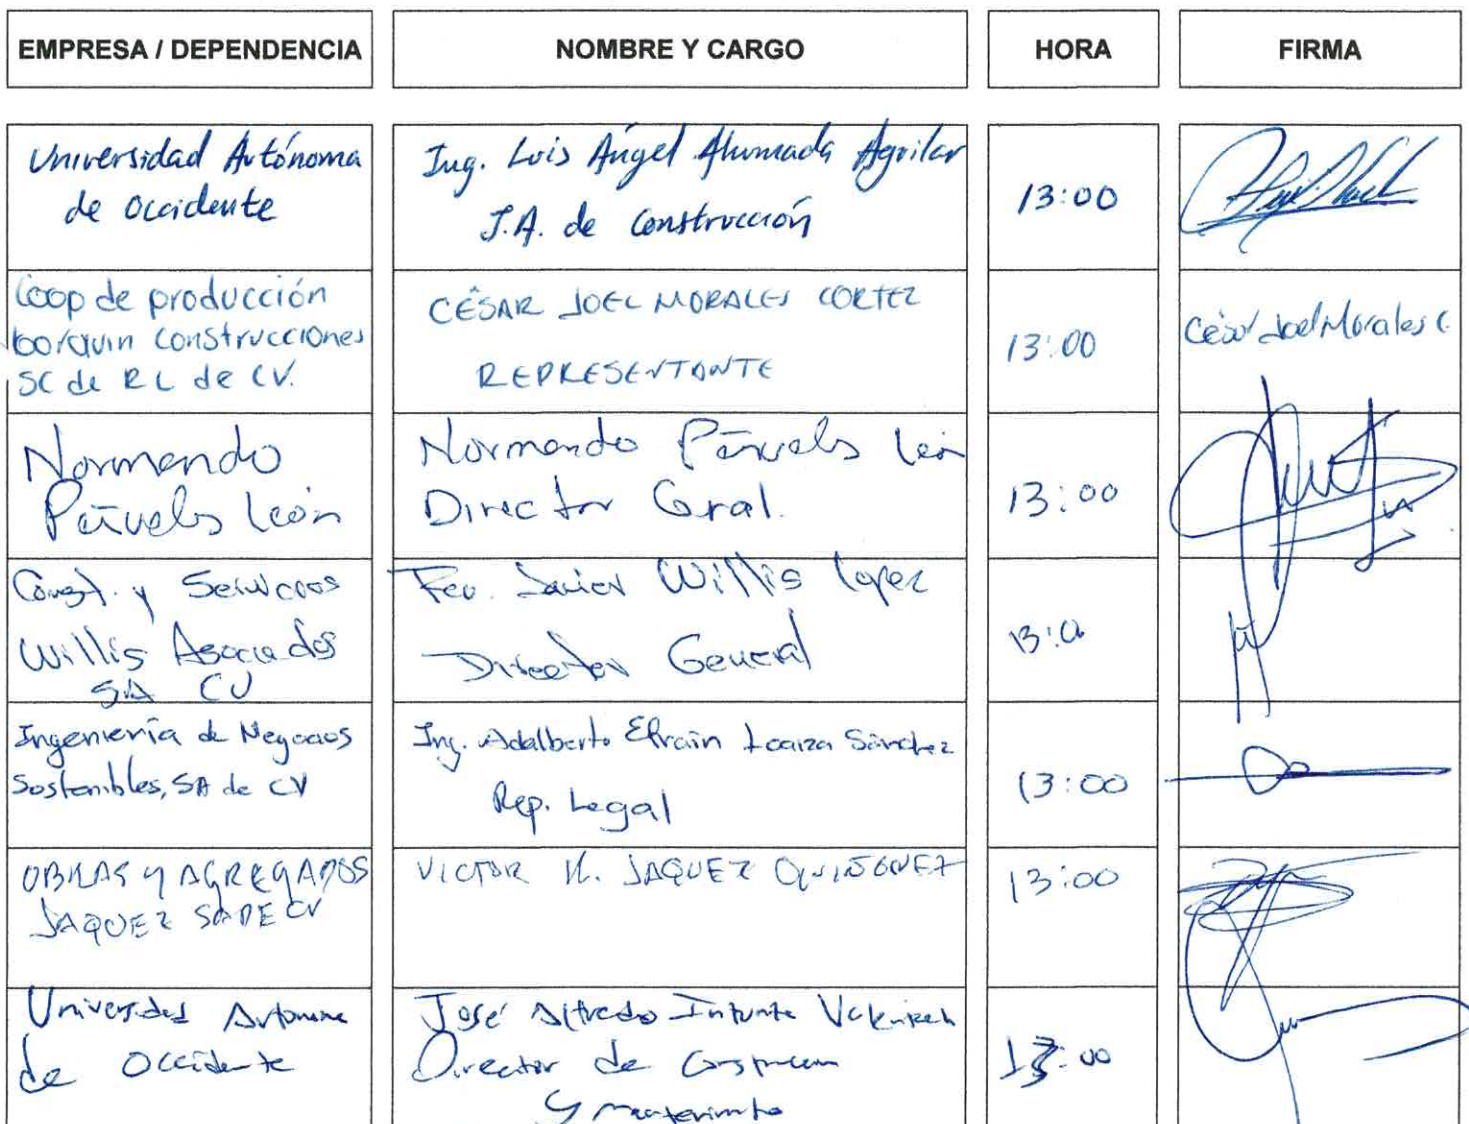 EMPRESA / DEPENDENCIA NOMBRE Y CARGO HORA FIRMA
Universidad Autónoma
de Occidente
Ing. Luis Ángel Ahumada Aguilar
J.A. de Construcción
13:00
Coop de producción
construcciones
SC de RL de CV.
CÉSAR JOEL MORALES CORTEZ
REPRESENTANTE
13:00
César Joel Morales C.
Normando
León
Normando León
Director Gral.
13:00
Const. y Servicios
Willis Asociados
SA CV
Fco. Javier Willis Lopez
Director General
Ingeniería de Negocios
Sostenibles, SA de CV
Ing. Adalberto Efraín Loaiza Sánchez
Rep. Legal
13:00
OBRAS Y AGREGADOS
JAQUEZ SA DE CV
VICTOR H. JAQUEZ QUIÑONEZ
13:00
Universidad Autonoma
de Occidente
José Alfredo
Director de
y
13:00